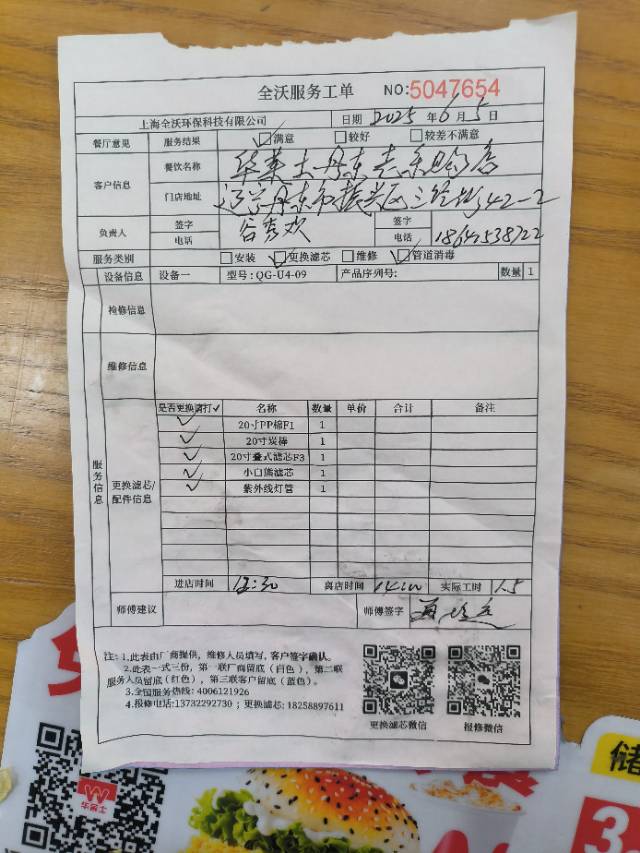 全沃服务工单 NO:5047654
上海全沃环保科技有限公司 日期 2025 年 6 月 5 日
餐厅意见 服务结果 ☑满意 □较好 □较差不满意
客户信息 餐饮名称 华莱士丹东
门店地址 辽宁丹东市振兴区三纬街42-2
负责人 签字 谷秀欢 签字
电话 电话
服务类别 □安装 ☑更换滤芯 □维修 ☑管道消毒
设备信息 设备一 型号:QG-U4-09 产品序列号: 数量 1
检修信息
维修信息
服务信息
更换滤芯/配件信息
是否更换请打✓ 名称 数量 单价 合计 备注
✓ 20寸PP棉F1 1
✓ 20寸炭棒 1
✓ 20寸叠式滤芯F3 1
✓ 小白熊滤芯 1
✓ 紫外线灯管 1
进店时间 12:30 离店时间 14:00 实际工时 1.5
师傅建议 师傅签字
注: 1.此表由厂商提供，维修人员填写，客户签字确认。
2.此表一式三份，第一联厂商留底（白色），第二联
服务人员留底(红色)，第三联客户留底（蓝色）。
3.全国服务热线: 4006121926
4.报修电话:13732292730 ; 更换滤芯: 18258897611
更换滤芯微信 报修微信
华莱士
储
3